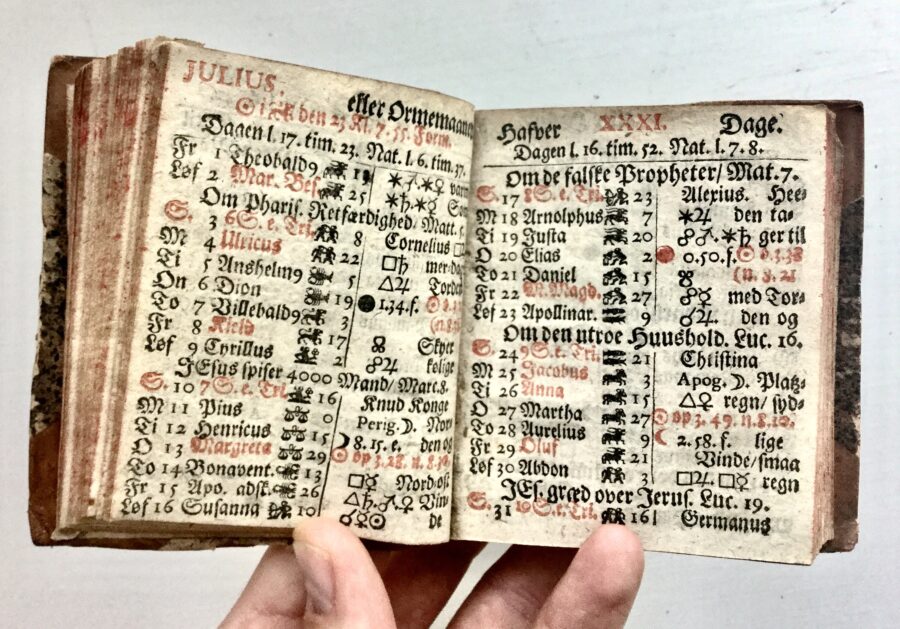 JULIUS.
eller Ormemaanen
☉ i den 23 Kl. 7. 55. Form.
Dagen l. 17. tim. 23. Nat. l. 6. tim. 37.
Fr 1 Theobald9 13 ⚹♂. ⚹♀ varm
Løf 2 Mar. Bes. 25 ⚹♄. ⚹☿
Om Pharis. Retfærdighed/ Matt. 5.
S. 3 6 S. e. Tri. 8 Cornelius
M 4 Ulricus 22 □♄ mer-dag
Ti 5 Anshelm9 5 △♃ Torden
On 6 Dion 19 ● 1.34.f.
To 7 Villebald9 3
Fr 8 Kield 17 Skyer
Løf 9 Cyrillus 2 ☍♃ kølige
JEsus spiser 4000 Mand/ Marc. 8.
S. 10 7 S. e. Tri. 16 Knud Konge
M 11 Pius 0 Perig. ☽. Nor-
Ti 12 Henricus 15 ☽ 8. 15. e. den og
O 13 Margreta 29 ☉ op 3. 28. n. 8. 30.
To 14 Bonavent. 13 □☿ Nord-ost
Fr 15 Apo. adsk. 26 △♄. ⚹♀ Vin-
Løf 16 Susanna 10 ☌♀☉ de
Hafver XXXI. Dage.
Dagen l. 16. tim. 52. Nat. l. 7. 8.
Om de falske Propheter/ Mat. 7.
S. 17 8 S. e. Tri. 23 Alexius. Hee-
M 18 Arnolphus 7 ⚹♃ den ta-
Ti 19 Justa 20 ☍♂. ⚹♄ ger til
O 20 Elias 2 0.50.f. ☉ o.3.38
To 21 Daniel 15 (n. 8. 21
Fr 22 M. Magd. 27 ☍☿ med Tor-
Løf 23 Apollinar. 9 ☌♃. den og
Om den utroe Huushold. Luc. 16.
S. 24 9 S. e. Tri. 21 Christina
M 25 Jacobus 3 Apog. ☽. Platz-
Ti 26 Anna 15 △♀ regn/ syd-
O 27 Martha 27 ☉ op 3. 49. n. 8. 10.
To 28 Aurelius 9 ☾ 2. 58. f. lige
Fr 29 Oluf 21 Vinde/smaa
Løf 30 Abdon 3 □♃. □☿ regn
JEs. græd over Jerus. Luc. 19.
S. 31 10 S. e. Tri. 16 Germanus